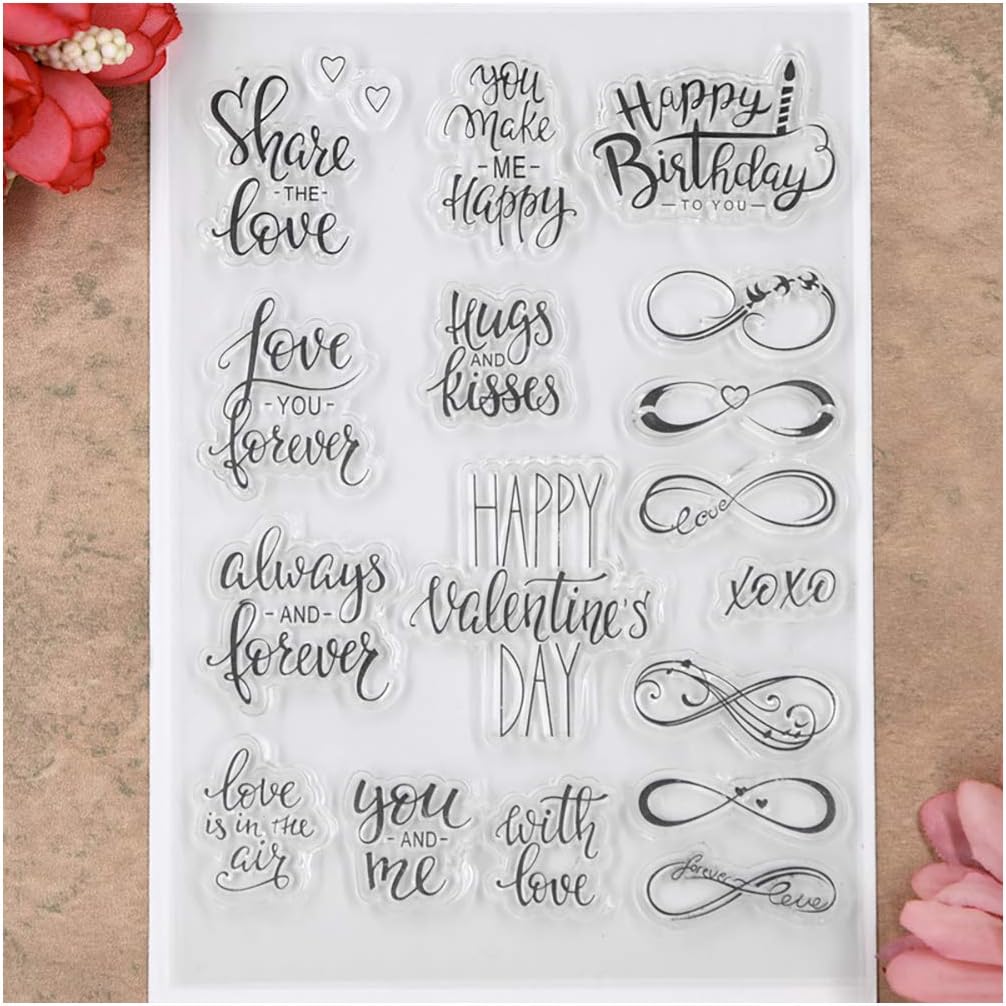 Share
-THE-
love
you
make
-ME-
Happy
Happy
Birthday
—TO YOU—
love
-YOU-
forever
Hugs
AND
kisses
love
always
-AND-
forever
HAPPY
Valentine's
DAY
xoxo
love
is in the
air
you
-AND-
me
with
love
forever
love